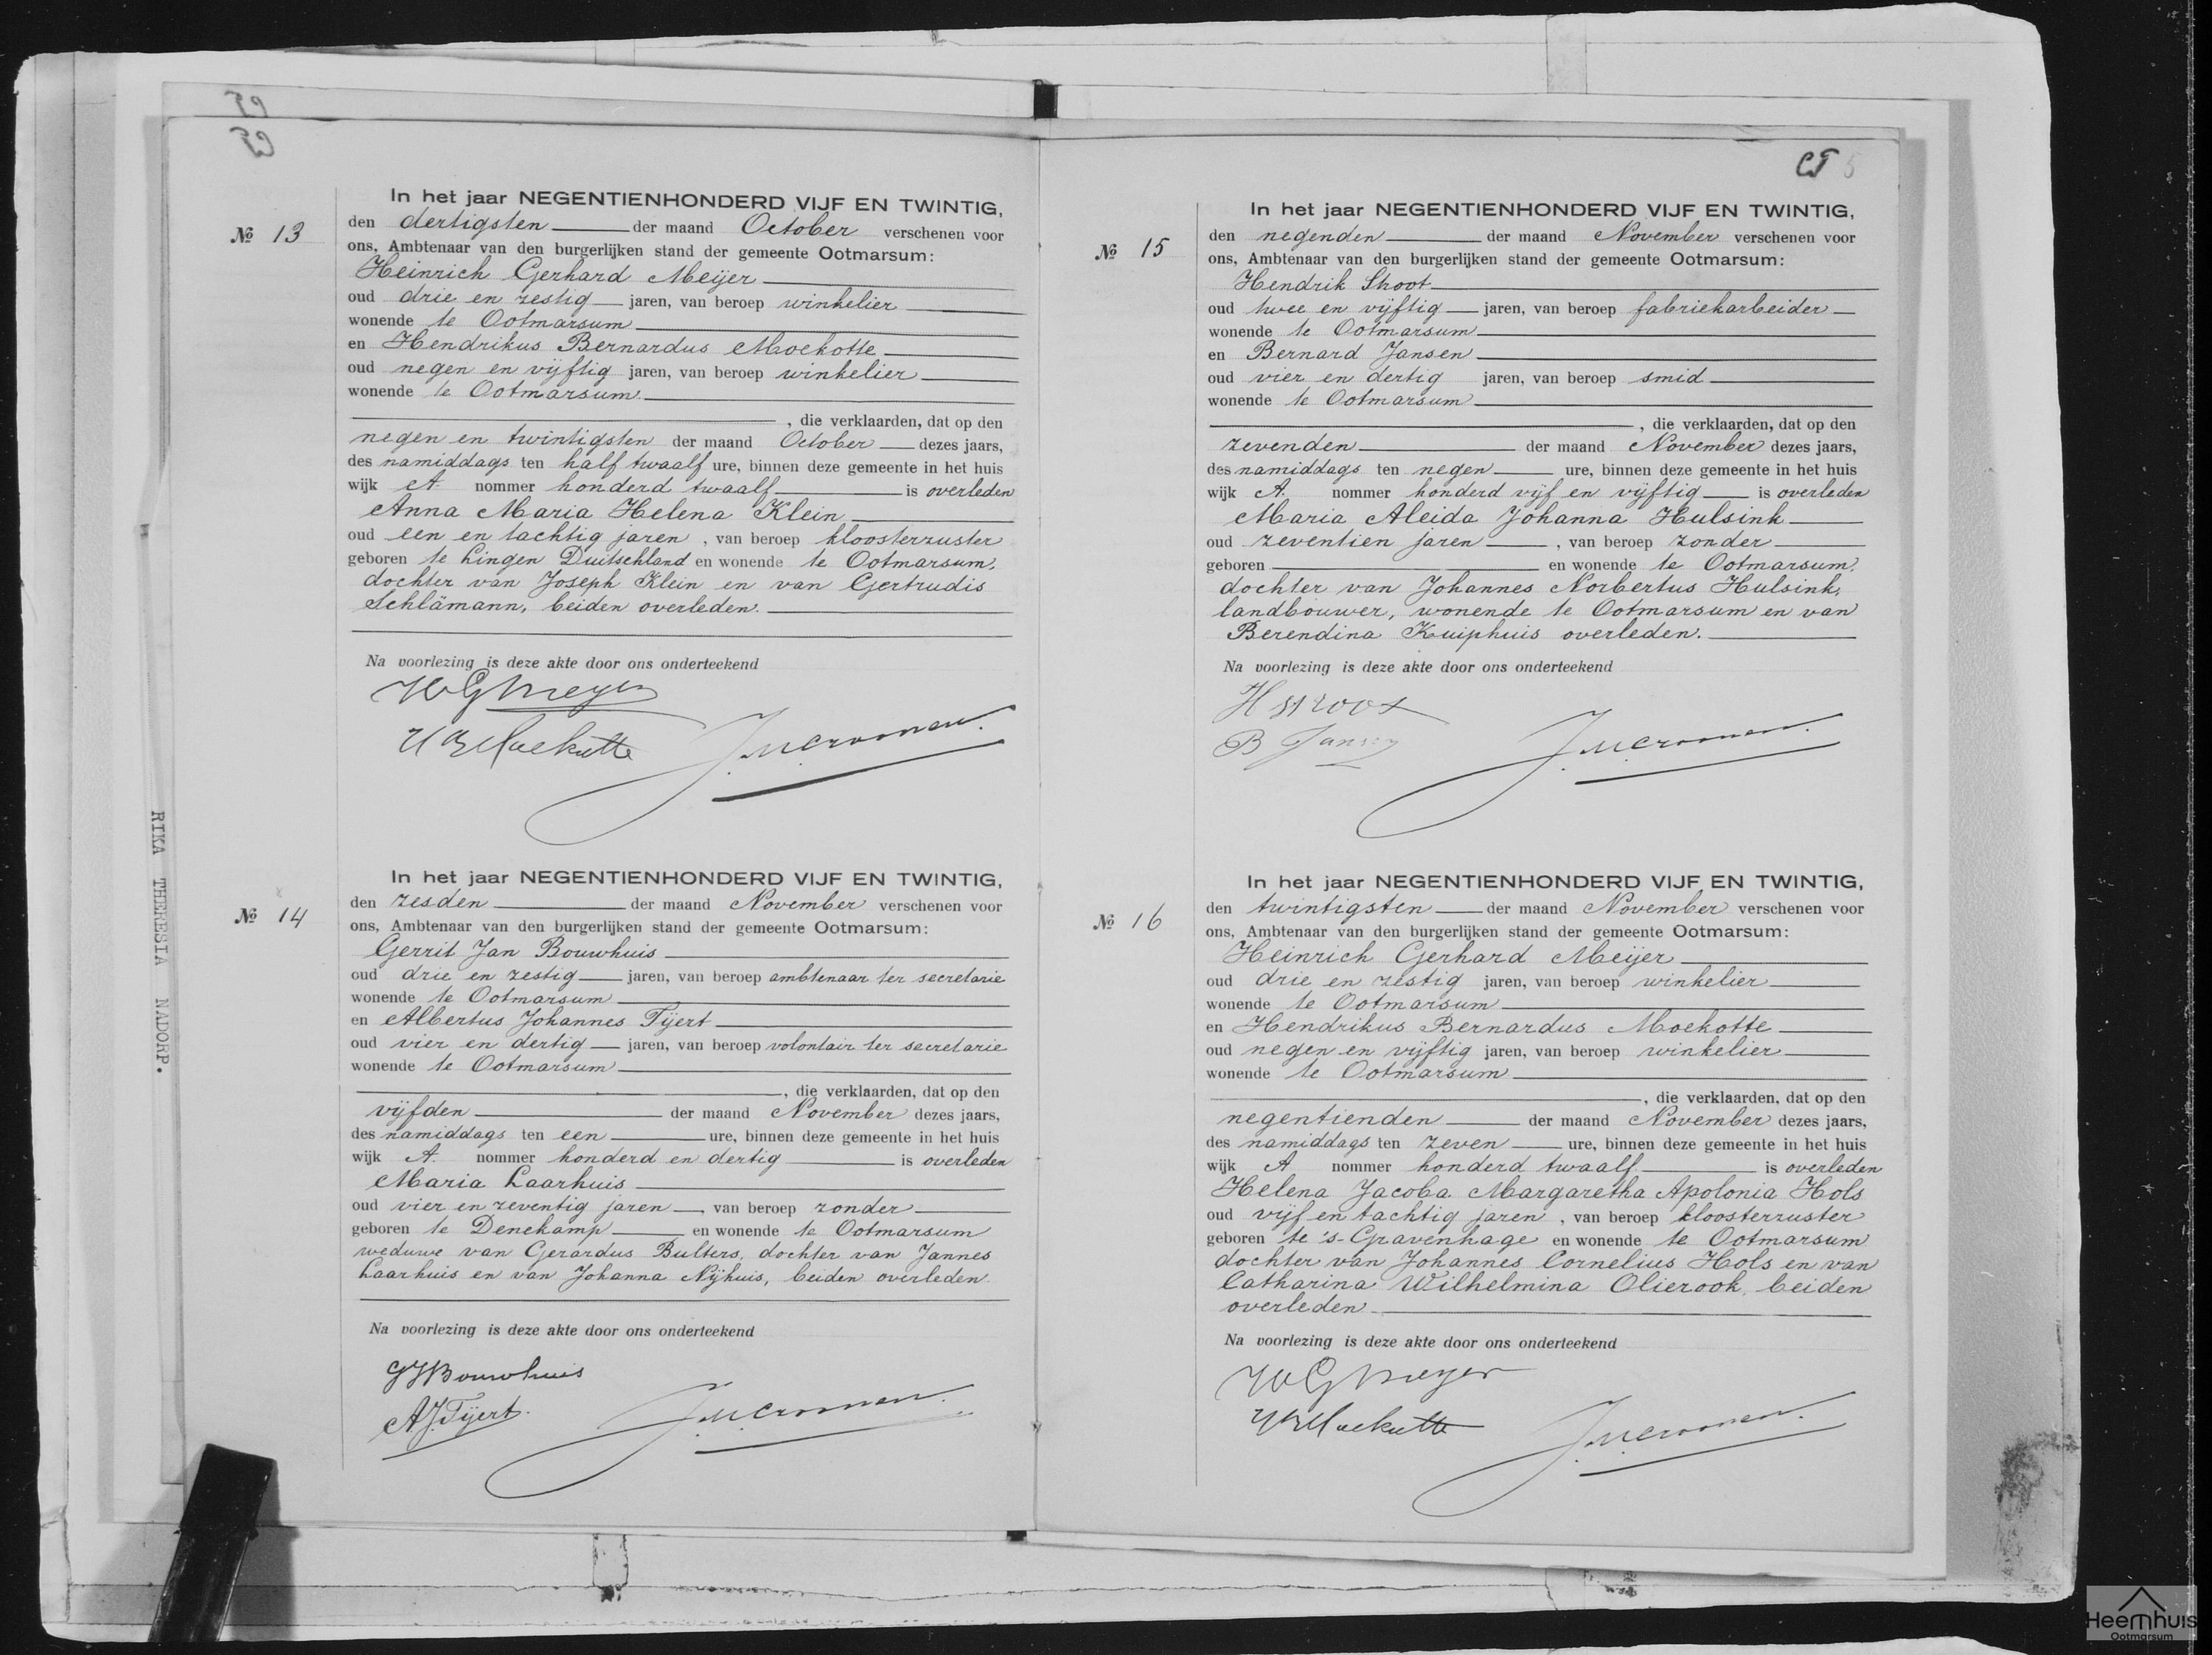 In het jaar NEGENTIENHONDERD VIJF EN TWINTIG,
№ 13
den dertigsten der maand October verschenen voor
ons, Ambtenaar van den burgerlijken stand der gemeente Ootmarsum:
Heinrich Gerhard Meijer
oud drie en zestig jaren, van beroep winkelier
wonende te Ootmarsum
en Hendrikus Bernardus Moekotte
oud negen en vijftig jaren, van beroep winkelier
wonende te Ootmarsum.
, die verklaarden, dat op den
negen en twintigsten der maand October dezes jaars,
des namiddags ten half twaalf ure, binnen deze gemeente in het huis
wijk A. nommer honderd twaalf is overleden
Anna Maria Helena Klein
oud een en tachtig jaren, van beroep kloosterzuster
geboren te Lingen Duitschland en wonende te Ootmarsum,
dochter van Joseph Klein en van Gertrudis
Schlämann, beiden overleden.
Na voorlezing is deze akte door ons onderteekend
HG Meyer
HB Moekotte
In het jaar NEGENTIENHONDERD VIJF EN TWINTIG,
№ 14
den zesden der maand November verschenen voor
ons, Ambtenaar van den burgerlijken stand der gemeente Ootmarsum:
Gerrit Jan Bouwhuis
oud drie en zestig jaren, van beroep ambtenaar ter secretarie
wonende te Ootmarsum
en Albertus Johannes Tijert
oud vier en dertig jaren, van beroep volontair ter secretarie
wonende te Ootmarsum
, die verklaarden, dat op den
vijfden der maand November dezes jaars,
des namiddags ten een ure, binnen deze gemeente in het huis
wijk A. nommer honderd en dertig is overleden
Maria Laarhuis
oud vier en zeventig jaren, van beroep zonder
geboren te Denekamp en wonende te Ootmarsum
weduwe van Gerardus Bulters, dochter van Jannes
Laarhuis en van Johanna Nijhuis, beiden overleden.
Na voorlezing is deze akte door ons onderteekend
GJBouwhuis
AJ.Tijert.
RIKA THERESIA NADORP.
5
In het jaar NEGENTIENHONDERD VIJF EN TWINTIG,
№ 15
den negenden der maand November verschenen voor
ons, Ambtenaar van den burgerlijken stand der gemeente Ootmarsum:
Hendrik Stroot
oud twee en vijftig jaren, van beroep fabriekarbeider
wonende te Ootmarsum
en Bernard Jansen
oud vier en dertig jaren, van beroep smid
wonende te Ootmarsum
, die verklaarden, dat op den
zevenden der maand November dezes jaars,
des namiddags ten negen ure, binnen deze gemeente in het huis
wijk A. nommer honderd vijf en vijftig is overleden
Maria Aleida Johanna Hulsink
oud zeventien jaren, van beroep zonder
geboren en wonende te Ootmarsum,
dochter van Johannes Norbertus Hulsink,
landbouwer, wonende te Ootmarsum en van
Berendina Kuiphuis overleden.
Na voorlezing is deze akte door ons onderteekend
H Stroot
B Jansen
In het jaar NEGENTIENHONDERD VIJF EN TWINTIG,
№ 16
den twintigsten der maand November verschenen voor
ons, Ambtenaar van den burgerlijken stand der gemeente Ootmarsum:
Heinrich Gerhard Meijer
oud drie en zestig jaren, van beroep winkelier
wonende te Ootmarsum
en Hendrikus Bernardus Moekotte
oud negen en vijftig jaren, van beroep winkelier
wonende te Ootmarsum
, die verklaarden, dat op den
negentienden der maand November dezes jaars,
des namiddags ten zeven ure, binnen deze gemeente in het huis
wijk A nommer honderd twaalf is overleden
Helena Jacoba Margaretha Apolonia Hols
oud vijf en tachtig jaren, van beroep kloosterzuster
geboren te 's-Gravenhage en wonende te Ootmarsum
dochter van Johannes Cornelius Hols en van
Catharina Wilhelmina Olierook, beiden
overleden
Na voorlezing is deze akte door ons onderteekend
HG Meyer
HB Moekotte
Heemhuis
Ootmarsum